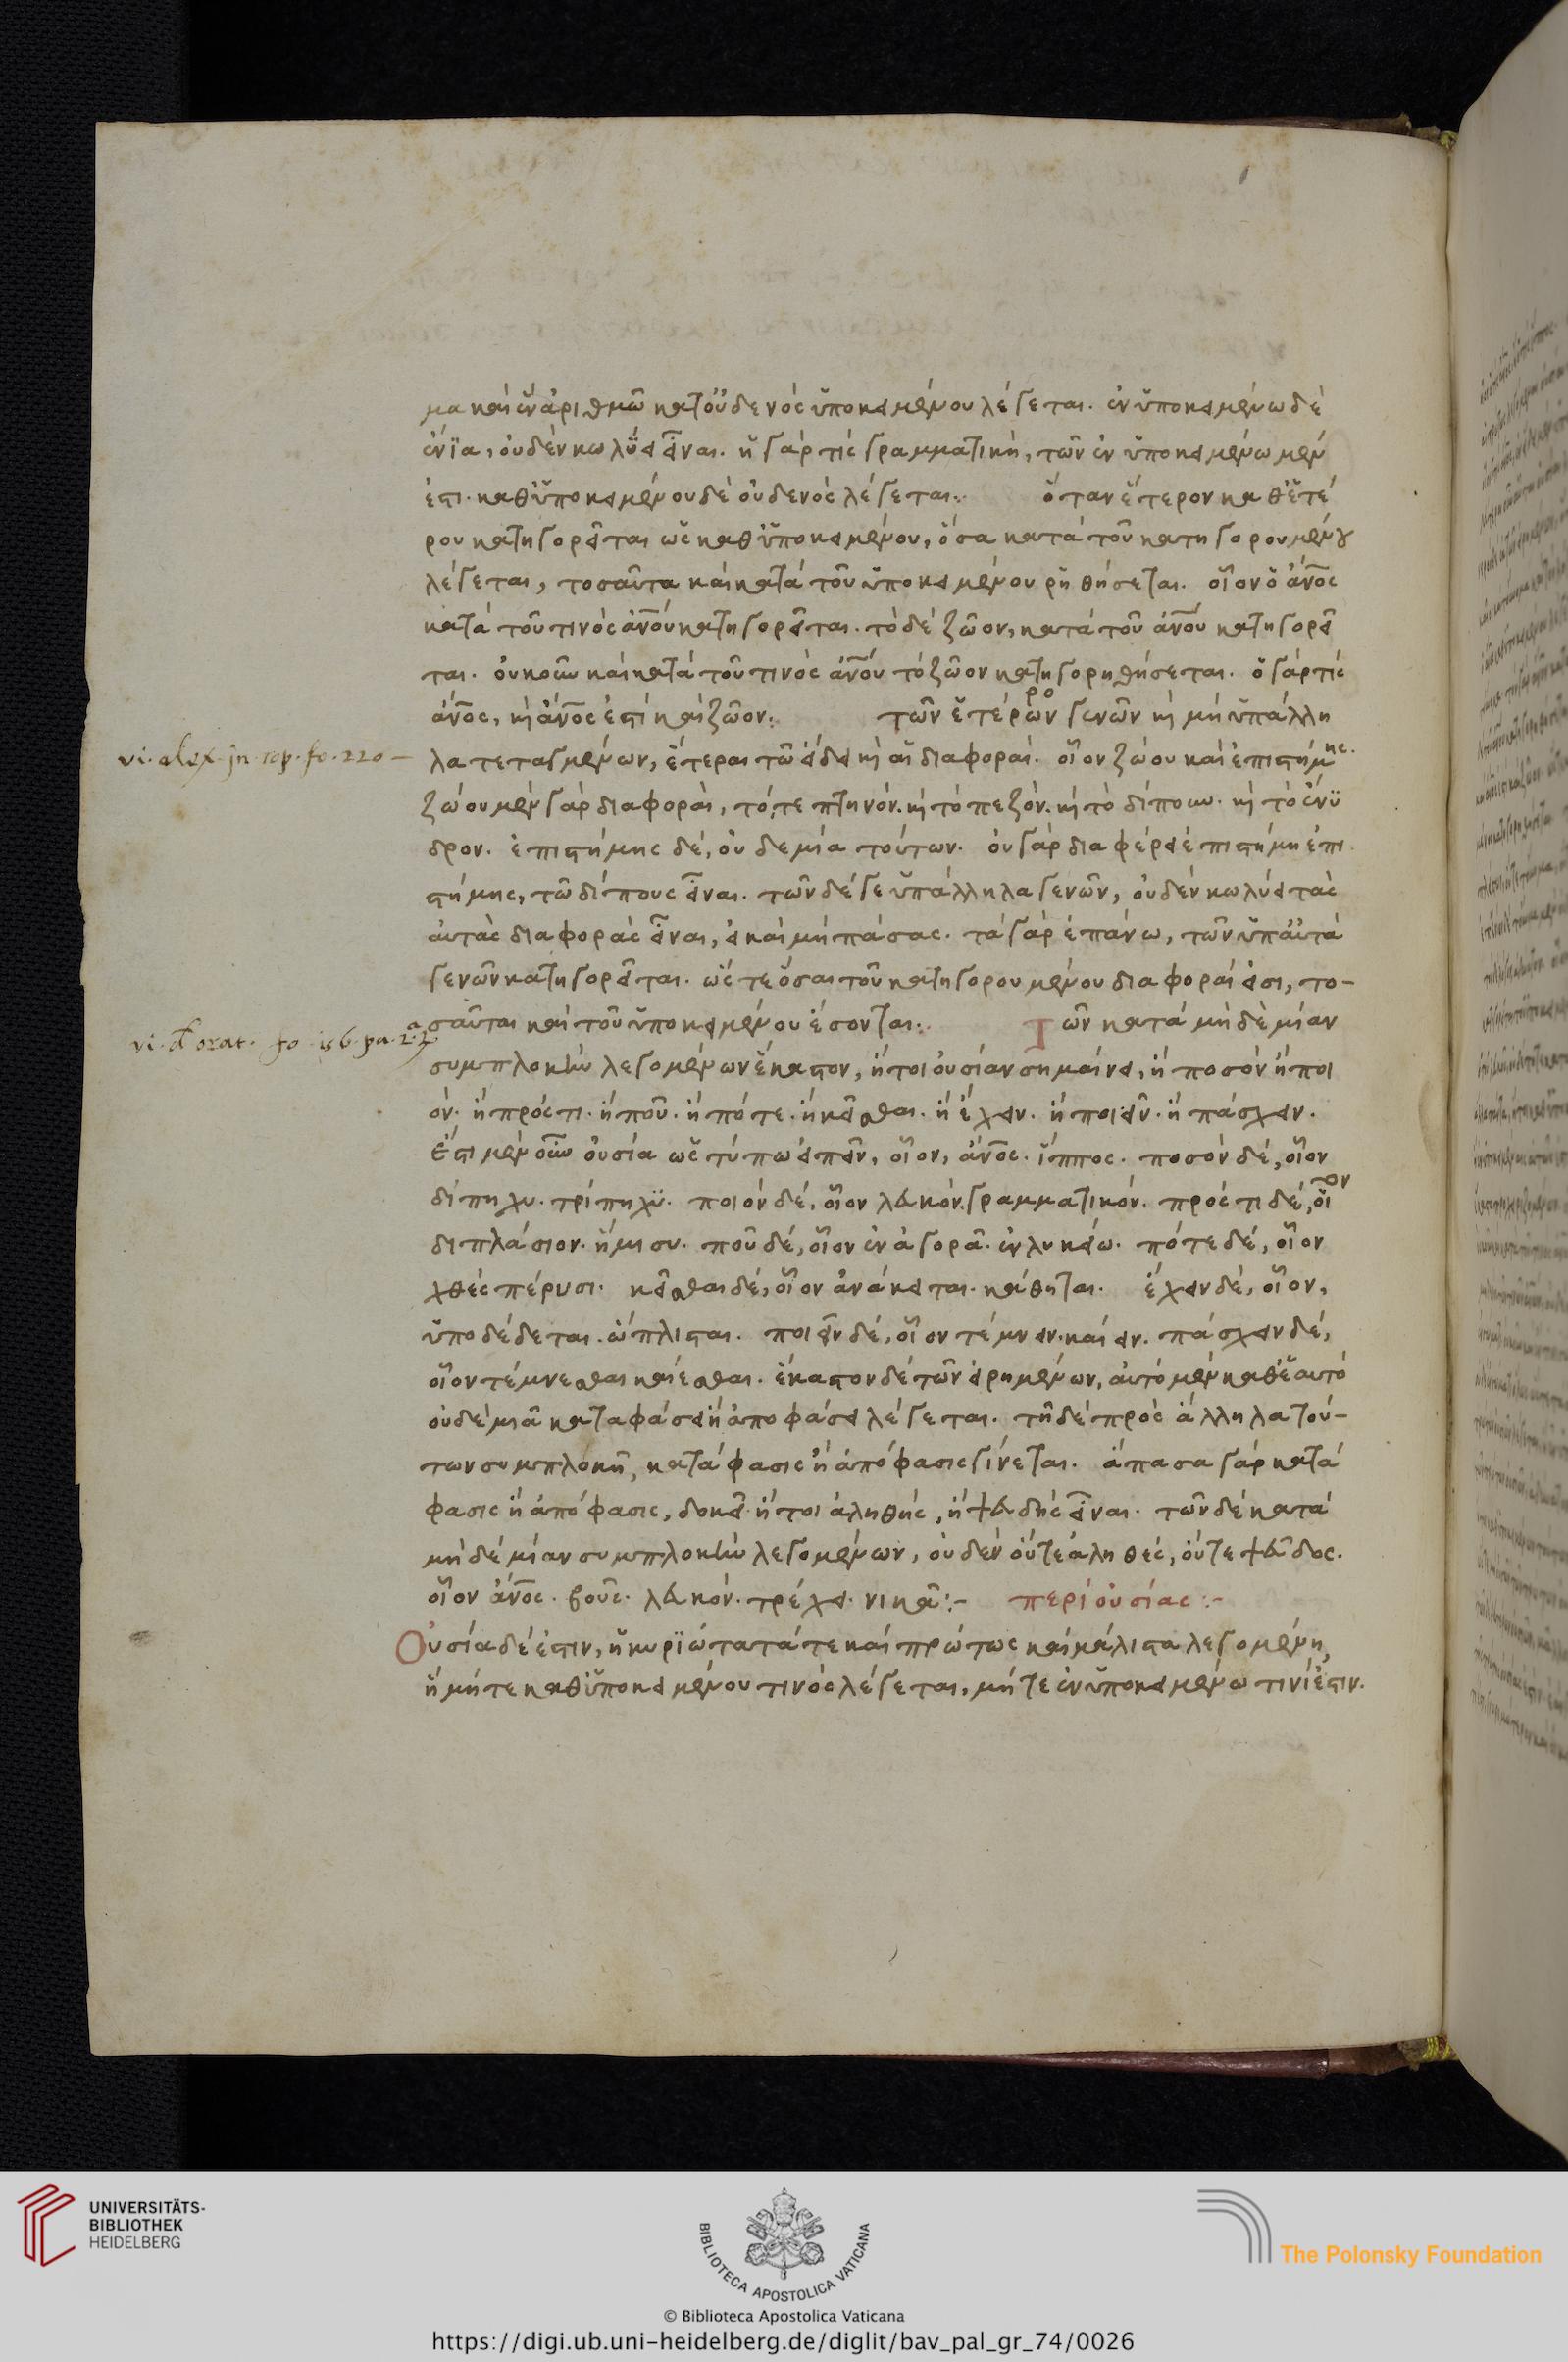 μα καὶ ἓν ἀριθμῶ κατ' οὐδενὸς ὑποκειμένου λέγεται. ἐν ὑποκειμένω δὲ
ἔνϊα, οὐδὲν κωλύει εἶναι. ἡ γάρ τὶς γραμματικὴ, τῶν ἐν ὑποκειμένω μέν
ἐστι. καθ' ὑποκειμένου δὲ οὐδενὸς λέγεται:. ὅταν ἕτερον καθ' ἑτέ
ρου κατηγορεῖται ὡς καθ' ὑποκειμένου, ὅσα κατὰ τοῦ κατηγορουμένου
λέγεται, τοσαῦτα καὶ κατὰ τοῦ ὑποκειμένου ῥηθήσεται. οἷον ὁ ἄνος
κατὰ τοῦ τινὸς ἀνου κατηγορεῖται. τὸ δὲ ζῶον, κατὰ τοῦ ἀνου κατηγορεῖ
ται. οὐκοῦν καὶ κατὰ τοῦ τινὸς ἀνου τὸ ζῶον κατηγορηθήσεται. ὁ γάρ τὶς
ἄνος, κὴ ἄνος ἐστὶ καὶ ζῶον:. τῶν ἑτέρων γενῶν κὴ μὴ ὑπάλλη
ρο
vi. alex. jn. top. fo. 220 — λα τεταγμένων, ἕτεραι τῶ εἴδει κὴ αἱ διαφοραί. οἷον ζώου καὶ ἐπιστήμης.
ζώου μὲν γὰρ διαφοραὶ, τό, τε πτηνόν. κὴ τὸ πεζόν. κὴ τὸ δίπουν. κὴ τὸ ἔνϋ
δρον. ἐπιστήμης δὲ, οὐδεμία τούτων. οὐ γὰρ διαφέρει ἐπιστήμη ἐπι
στήμης, τῶ δίπους εἶναι. τῶν δέ γε ὑπάλληλα γενῶν, οὐδὲν κωλύει τὰς
αὐτὰς διαφορὰς εἶναι, εἰ καὶ μὴ πάσας. τὰ γὰρ ἐπάνω, τῶν ὑπ' αὐτὰ
γενῶν κατηγορεῖται. ὥστε ὅσαι τοῦ κατηγορουμένου διαφοραί εἰσι, το-
σαῦται καὶ τοῦ ὑποκειμένου ἔσονται:. Τῶν κατὰ μὴδὲμίαν
συμπλοκὴν λεγομένων ἕκαστον, ἤτοι οὐσίαν σημαίνει, ἢ ποσὸν ἢ ποι
ὸν. ἢ πρός τι. ἢ ποῦ. ἢ πότε. ἢ κεῖσθαι. ἢ ἔχειν. ἢ ποιεῖν. ἢ πάσχειν.
ἔστι μὲν οὖν οὐσία ὡς τύπω εἰπεῖν, οἷον, ἄνος. ἵππος. ποσὸν δὲ, οἷον
δίπηχυ. τρίπηχϋ. ποιὸν δὲ, οἷον λευκόν. γραμματικόν. πρός τι δὲ, οἷον
διπλάσιον. ἥμισυ. ποῦ δὲ, οἷον ἐν ἀγορᾶ. ἐν λυκείω. πότε δὲ, οἷον
χθὲς πέρυσι. κεῖσθαι δὲ, οἷον ἀνάκειται. κάθηται. ἔχειν δὲ, οἷον,
ὑποδέδεται. ὥπλισται. ποιεῖν δὲ, οἷον τέμνειν. καίειν. πάσχειν δὲ,
οἷον τέμνεσθαι καίεσθαι. ἕκαστον δὲ τῶν εἰρημένων, αὐτὸ μὲν καθ' ἑαυτὸ
οὐδεμιᾶ καταφάσει ἢ ἀποφάσει λέγεται. τῆ δὲ πρὸς ἄλληλα τού-
των συμπλόκῆ, κατάφασις ἢ ἀπόφασις γίνεται. ἅπασα γὰρ κατά
φασις ἢ ἀπόφασις, δοκεῖ. ἤτοι ἀληθής, ἢ ψευδὴς εἶναι. τῶν δὲ κατὰ
μὴδὲμίαν συμπλοκὴν λεγομένων, οὐδὲν οὔτε ἀληθές, οὔτε ψεῦδος.
οἷον ἄνος. βοῦς. λευκόν. τρέχει. νικᾶ:- περὶ οὐσίας:-
Οὐσία δέ ἐστιν, ἡ κυρϊώτατά τε καὶ πρώτως καὶ μάλιστα λεγομένη,
ἣ μήτε καθ' ὑποκειμένου τινὸς λέγεται, μήτε ἐν ὑποκειμένω τινί ἐστιν.
UNIVERSITÄTS-
BIBLIOTHEK
HEIDELBERG
BIBLIOTECA APOSTOLICA VATICANA
The Polonsky Foundation
© Biblioteca Apostolica Vaticana
https://digi.ub.uni-heidelberg.de/diglit/bav_pal_gr_74/0026